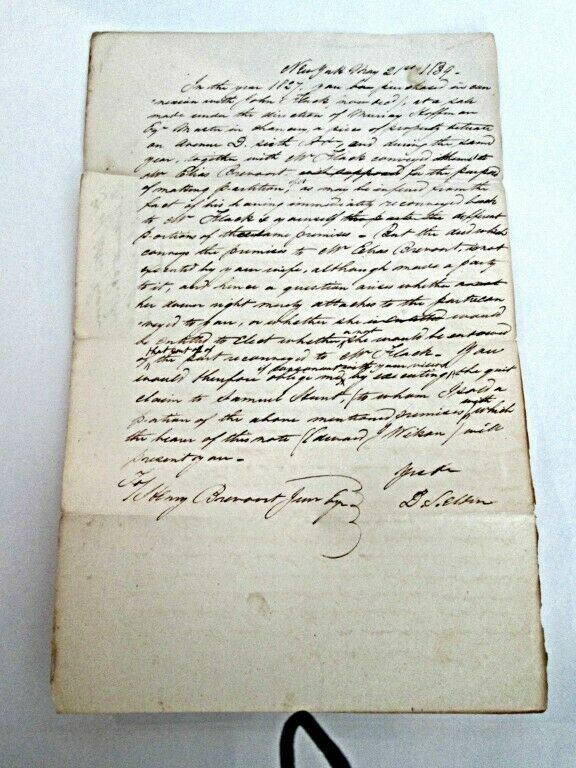 New York May 21st 1839.
In the year 1827, you having purchased in con
nexion with John Flack, now dec'd, at a sale
made under the direction of Murray Hoffman
Esqr Master in chancery a piece of property situate
on Avenue D, sixth St., and during the same
year, together with Mr Flack conveyed
Mr Elias Brevoort for the purpose
of making partition, as may be inferred from the
fact of his having immediately reconveyed back
to Mr Flack & yourself the different
portions of the same premises. But the deed which
conveys the premises to Mr Elias Brevoort, is not
executed by your wife, although made a party
to it, and hence a question arises whether
her dower right merely attaches to the part recon
veyed to you, or whether she would
be entitled to elect whether she would be endowed
of the part reconveyed to Mr Flack. You
would therefore oblige me by executing the quit
claim to Samuel Hunt, (to whom I sold a
portion of the above mentioned premises) which
the bearer of this note (Edward J Wilson) will
present you.
To
Henry Brevoort Junr Esqr